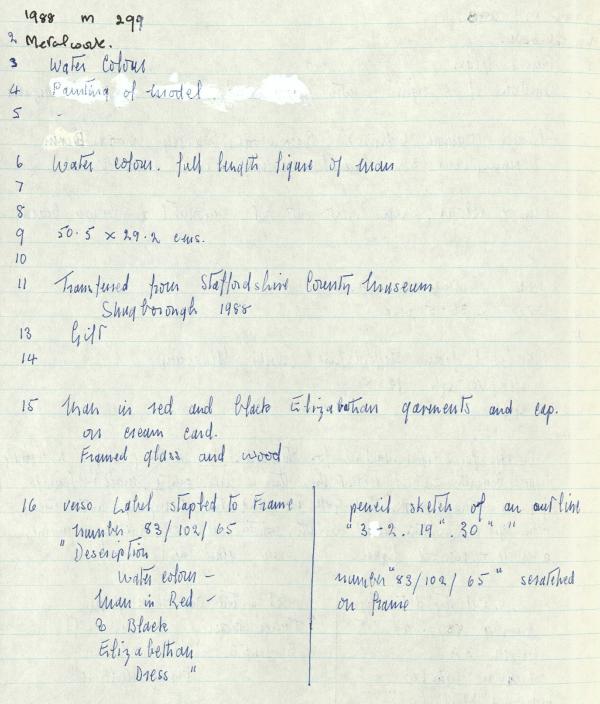 1988 m 299
2 Metalwork.
3 Water Colour
4 Painting of model
5 -
6 Water colour. full length figure of man
7
8
9 50.5 x 29.2 cms.
10
11 Transferred from Staffordshire County Museum
Shugborough 1988
13 Gift
14
15 Man in red and black Elizabethan garments and cap.
on cream card.
Framed glass and wood
16 verso Label stapled to Frame
number 83/102/65
" Description
Water colour -
Man in Red -
& Black
Elizabethan
Dress "
pencil sketch of an outline
" 3 2. 19". 30 " "
number "83/102/65" scratched
on frame